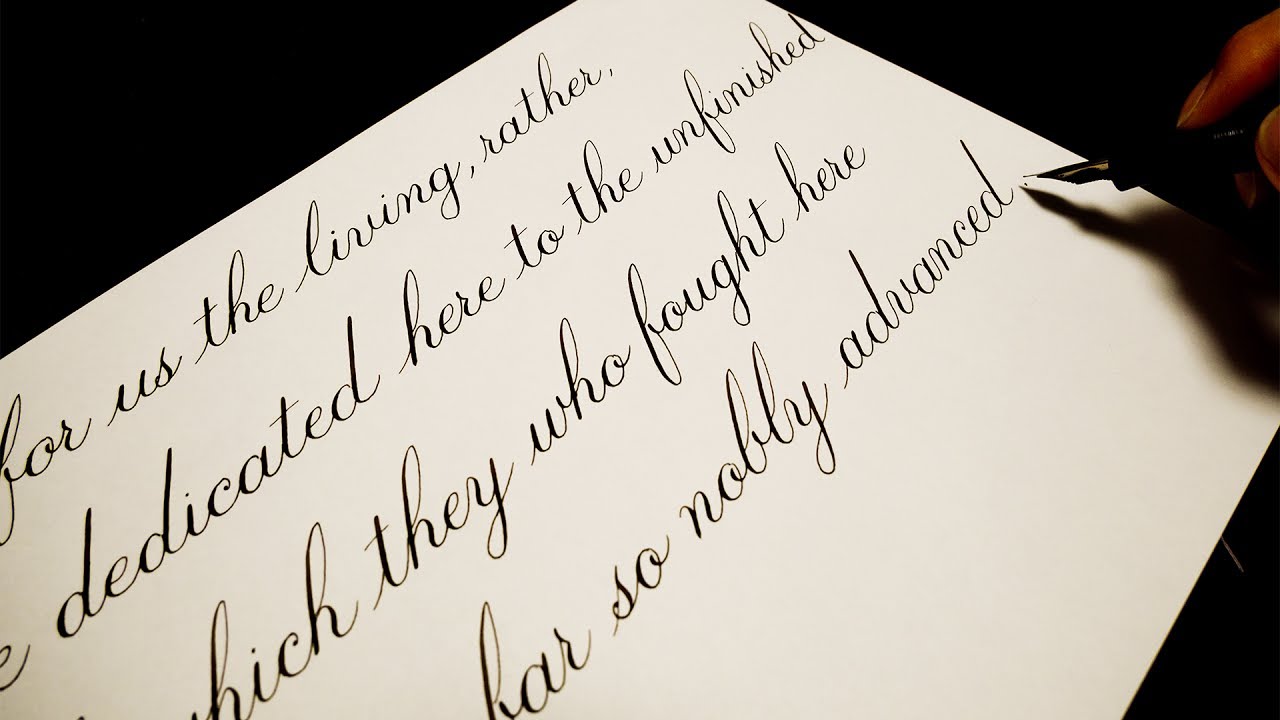 for us the living, rather,
dedicated here to the unfinished
which they who fought here
far so nobly advanced.